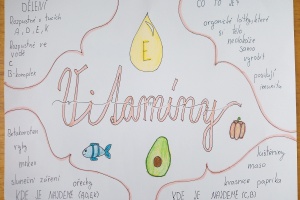 DĚLENÍ
Rozpustné v tucích
A, D, E, K
Rozpustné ve
vodě
C
B-komplex
CO TO JE?
organické látky, které
si tělo
nedokáže
samo
vyrobit
posilují
imunitu
E
Vitamíny
Betakaroten
ryby
mrkev
sluneční záření
ořechy
KDE JE NAJDEME (A,D,E,K)
luštěniny
maso
brusnice paprika
KDE JE NAJDEME (C,B)